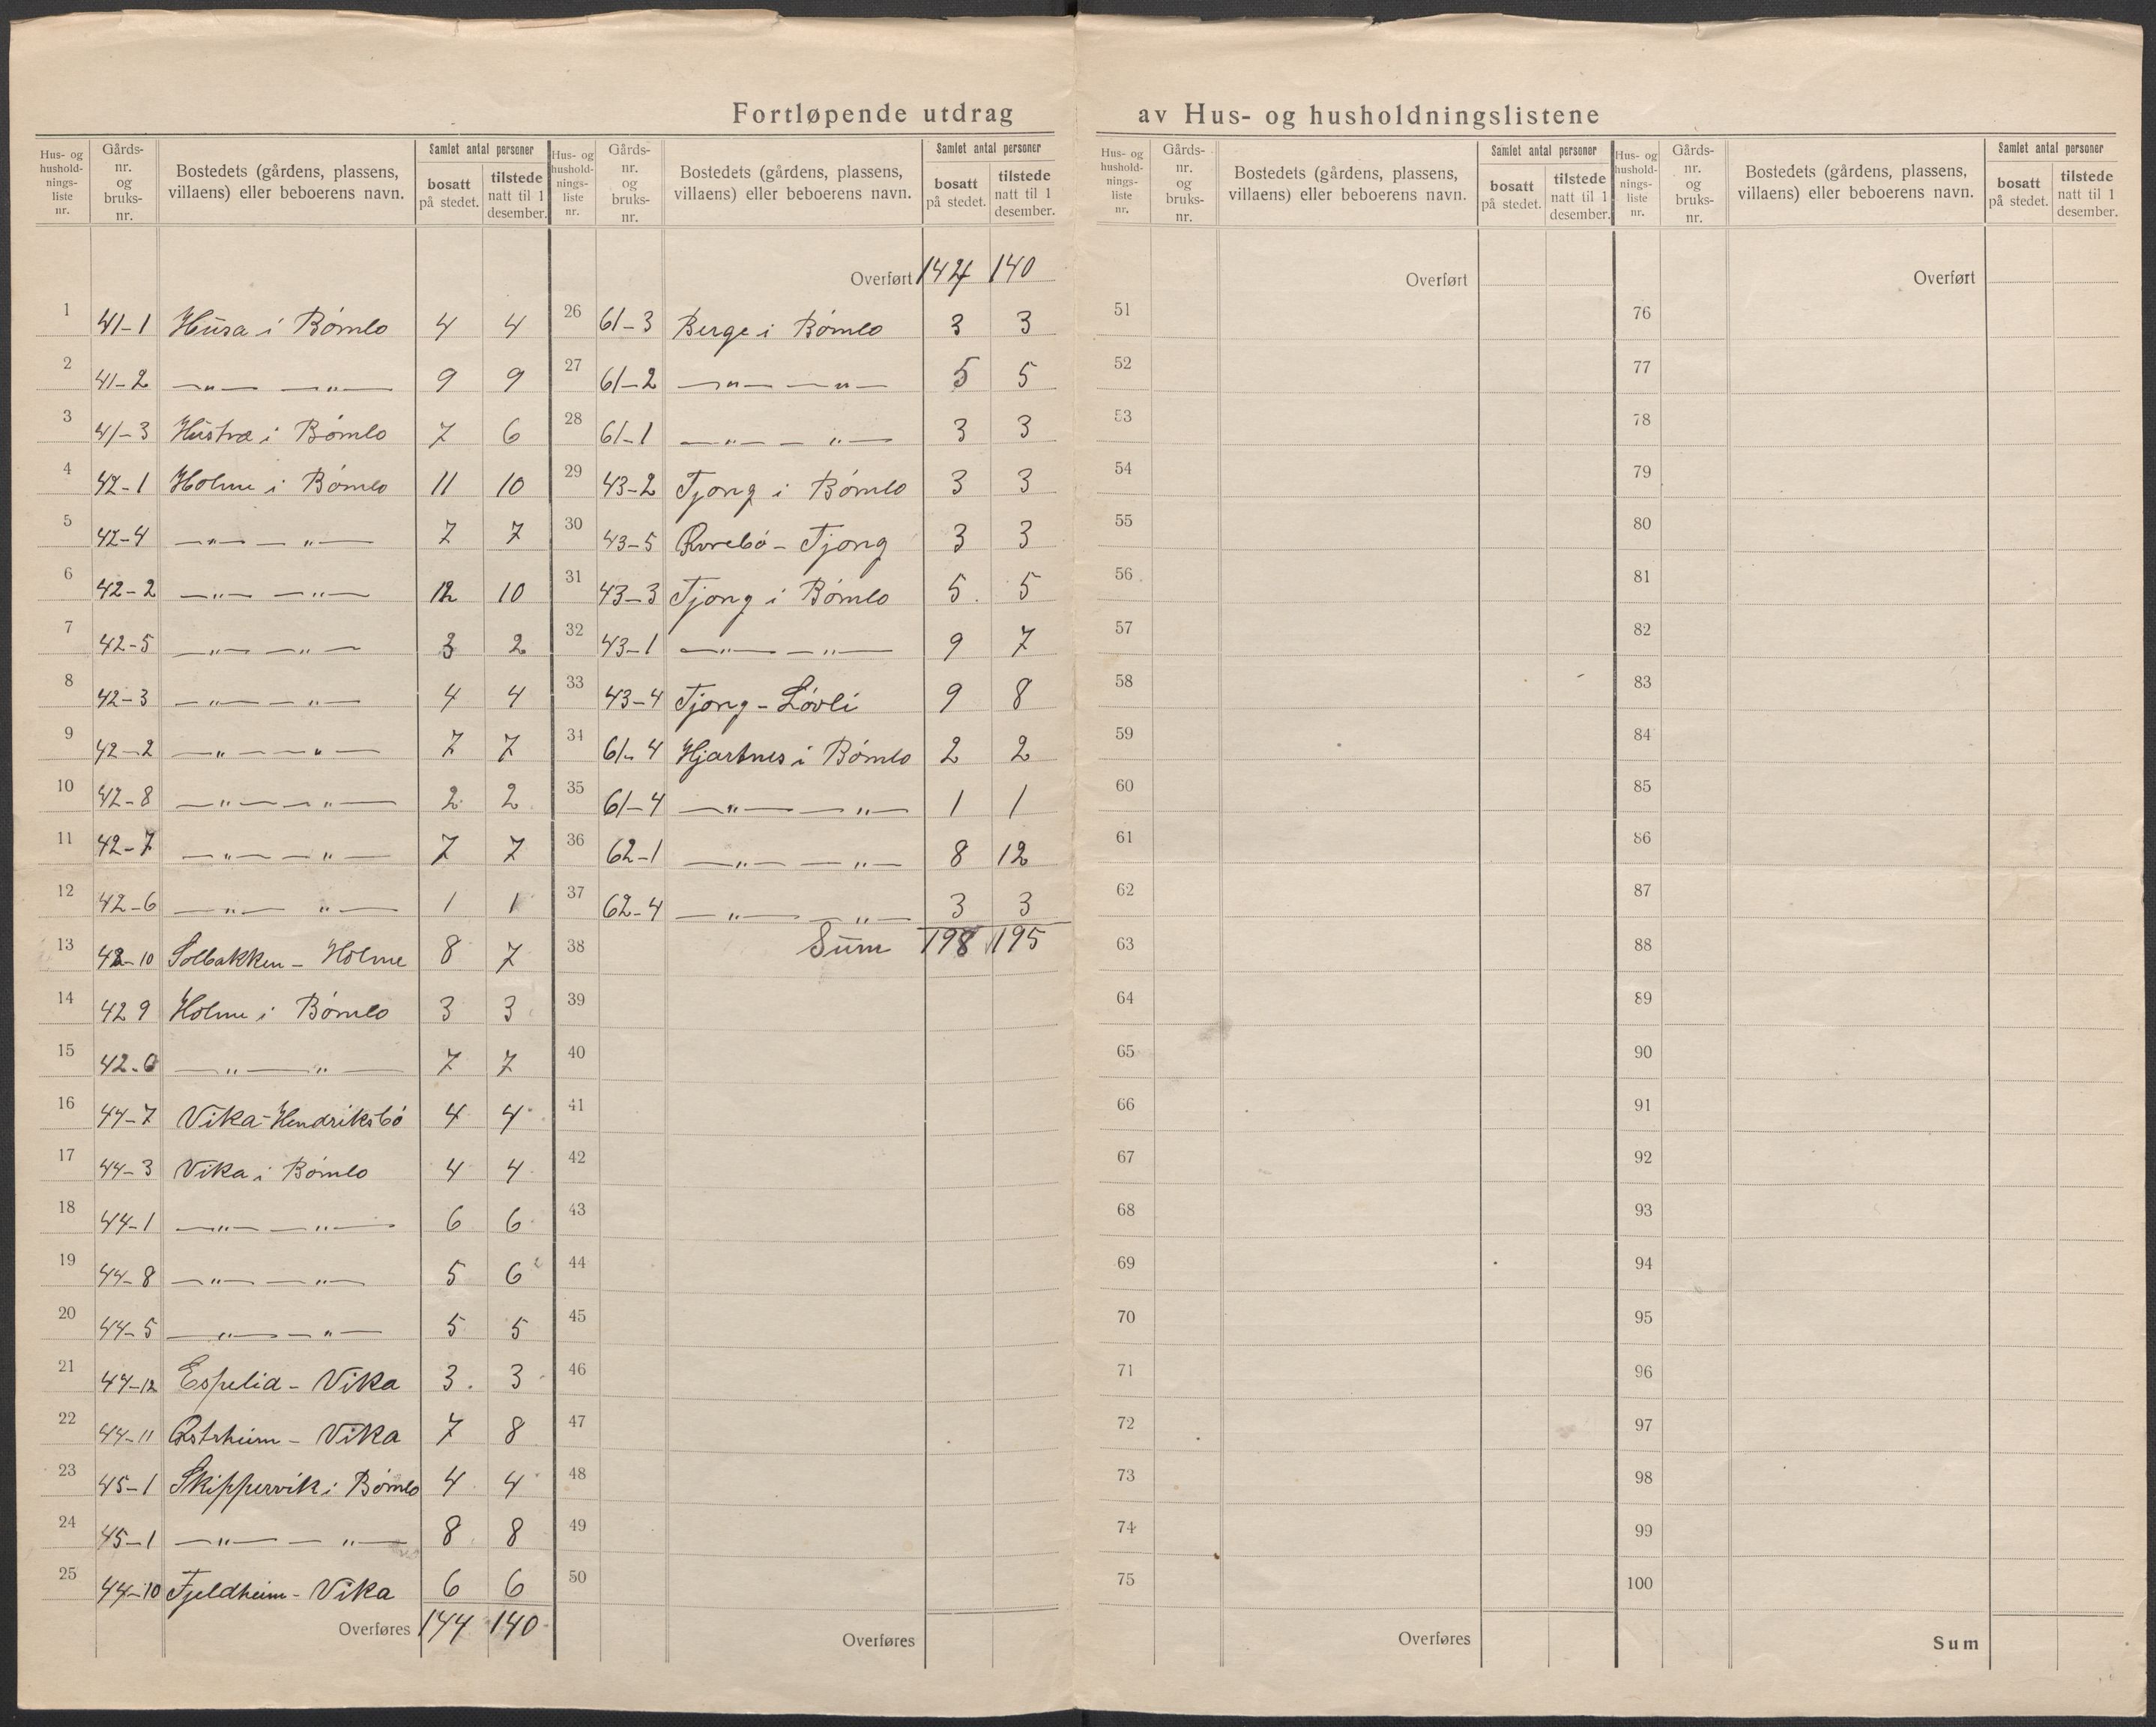 Fortløpende utdrag av Hus- og husholdningslistene
Hus- og husholdningsliste nr. | Gårds-nr. og bruks-nr. | Bostedets (gårdens, plassens, villaens) eller beboerens navn. | Samlet antal personer bosatt på stedet. | tilstede natt til 1 desember.
1 41-1 Husa i Bømlo 4 4
2 41-2 —„— —„— 9 9
3 41-3 Hustræ i Bømlo 7 6
4 42-1 Holme i Bømlo 11 10
5 42-4 —„— —„— 7 7
6 42-2 —„— —„— 12 10
7 42-5 —„— —„— 3 2
8 42-3 —„— —„— 4 4
9 42-2 —„— —„— 7 7
10 42-8 —„— —„— 2 2
11 42-7 —„— —„— 7 7
12 42-6 —„— „— 1 1
13 42-10 Solbakken - Holme 8 7
14 42 9 Holme i Bømlo 3 3
15 42-0 —„— „— 7 7
16 44-7 Vika-Hendriksbø 4 4
17 44-3 Vika i Bømlo 4 4
18 44-1 —„— —„— 6 6
19 44-8 —„— —„— 5 6
20 44-5 —„— —„— 5 5
21 44-12 Espelid - Vika 3 3
22 44-11 - Vika 7 8
23 45-1 Skippervik i Bømlo 4 4
24 45-1 —„— —„— 8 8
25 44-10 Fjeldheim - Vika 6 6
Overføres 144 140
Hus- og husholdningsliste nr. | Gårds-nr. og bruks-nr. | Bostedets (gårdens, plassens, villaens) eller beboerens navn. | Samlet antal personer bosatt på stedet. | tilstede natt til 1 desember.
Overført 144 140
26 61-3 Berge i Bømlo 3 3
27 61-2 —„— —„— 5 5
28 61-1 —„— —„— 3 3
29 43-2 Tjong i Bømlo 3 3
30 43-5 - Tjong 3 3
31 43-3 Tjong i Bømlo 5 5
32 43-1 —„— —„— 9 7
33 43-4 Tjong - Løvli 9 8
34 61-4 Hjartnes i Bømlo 2 2
35 61-4 —„— —„— 1 1
36 62-1 —„— —„— 8 12
37 62-4 —„— —„— 3 3
38 Sum 198 195
39
40
41
42
43
44
45
46
47
48
49
50
Overføres
Hus- og husholdningsliste nr. | Gårds-nr. og bruks-nr. | Bostedets (gårdens, plassens, villaens) eller beboerens navn. | Samlet antal personer bosatt på stedet. | tilstede natt til 1 desember.
Overført
51
52
53
54
55
56
57
58
59
60
61
62
63
64
65
66
67
68
69
70
71
72
73
74
75
Overføres
Hus- og husholdningsliste nr. | Gårds-nr. og bruks-nr. | Bostedets (gårdens, plassens, villaens) eller beboerens navn. | Samlet antal personer bosatt på stedet. | tilstede natt til 1 desember.
Overført
76
77
78
79
80
81
82
83
84
85
86
87
88
89
90
91
92
93
94
95
96
97
98
99
100
Sum